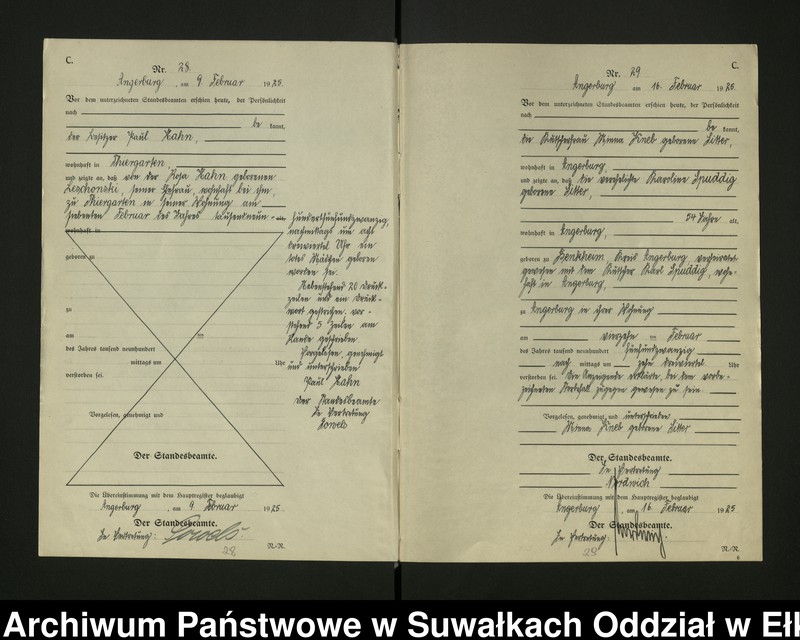 C.
Nr. 28
Angerburg, am 9. Februar 1925.
Vor dem unterzeichneten Standesbeamten erschien heute, der Persönlichkeit
nach
be kannt,
der Besitzer Paul Hahn,
wohnhaft in Thiergarten,
und zeigte an, daß von der Rosa Hahn geborenen
Leschonski, seiner Ehefrau, wohnhaft bei ihm,
zu Thiergarten in seiner Wohnung am
siebenten Februar des Jahres tausendneun-
hundertfünfundzwanzig,
nachmittags um acht
dreiviertel Uhr ein
totes Mädchen geboren
worden sei.
Nebenstehend 20 Druck-
zeilen und ein Druck-
wort gestrichen, vor-
stehend 5 Zeilen am
Rande geschrieben.
Vorgelesen, genehmigt
und unterschrieben
Paul Hahn
Der Standesbeamte
In Vertretung
wohnhaft in
geboren zu
zu
am ten
des Jahres tausend neunhundert
mittags um Uhr
verstorben sei.
Vorgelesen, genehmigt und
Der Standesbeamte.
Die Übereinstimmung mit dem Hauptregister beglaubigt
Angerburg, am 9. Februar 1925.
Der Standesbeamte.
In Vertretung:
28
N.-R.
C.
Nr. 29
Angerburg am 16. Februar 1925.
Vor dem unterzeichneten Standesbeamten erschien heute, der Persönlichkeit
nach
be kannt,
die Kutscherfrau Minna geborene
wohnhaft in Angerburg,
und zeigte an, daß die verehelichte Karoline Spuddig
geborene
54 Jahre alt,
wohnhaft in Angerburg,
geboren zu Benkheim, Kreis Angerburg, verheiratet
gewesen mit dem Kutscher Karl Spuddig, wohn-
haft in Angerburg,
zu Angerburg in ihrer Wohnung
am vierzehn ten Februar
des Jahres tausend neunhundert fünfundzwanzig
nach mittags um zehn dreiviertel Uhr
verstorben sei. Die Anzeigende erklärte, bei dem vorbe-
zeichneten Sterbefall zugegen gewesen zu sein.
Vorgelesen, genehmigt und unterschrieben
Minna geborene
Der Standesbeamte.
In Vertretung
Nordwich
Die Übereinstimmung mit dem Hauptregister beglaubigt
Angerburg, am 16. Februar 1925
Der Standesbeamte.
In Vertretung:
29
N.-R.
Archiwum Państwowe w Suwałkach Oddział w Eł